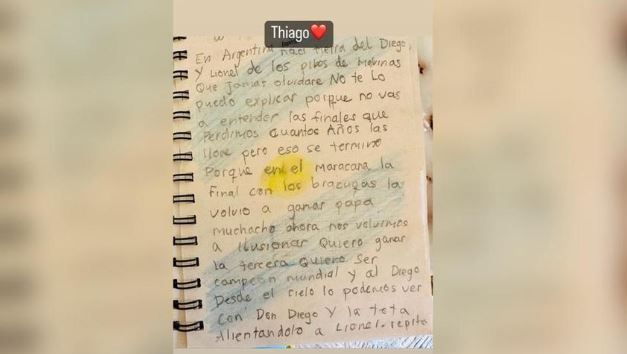 Thiago❤️
En Argentina naci tierra del Diego,
Y Lionel de los pibes de Malvinas
Que Jamas olvidare No te Lo
puedo explicar porque no vas
a entender las finales que
Perdimos cuantos Años las
llore pero eso se termino
Porque en el maracana la
Final con los brazucas la
volvio a ganar papa
muchacho ahora nos volvimos
a ilusionar Quiero ganar
la tercera Quiero Ser
campeon mundial y al Diego
Desde el cielo lo podemos ver
Con Don Diego Y la tota
Alientandolo a Lionel. repite